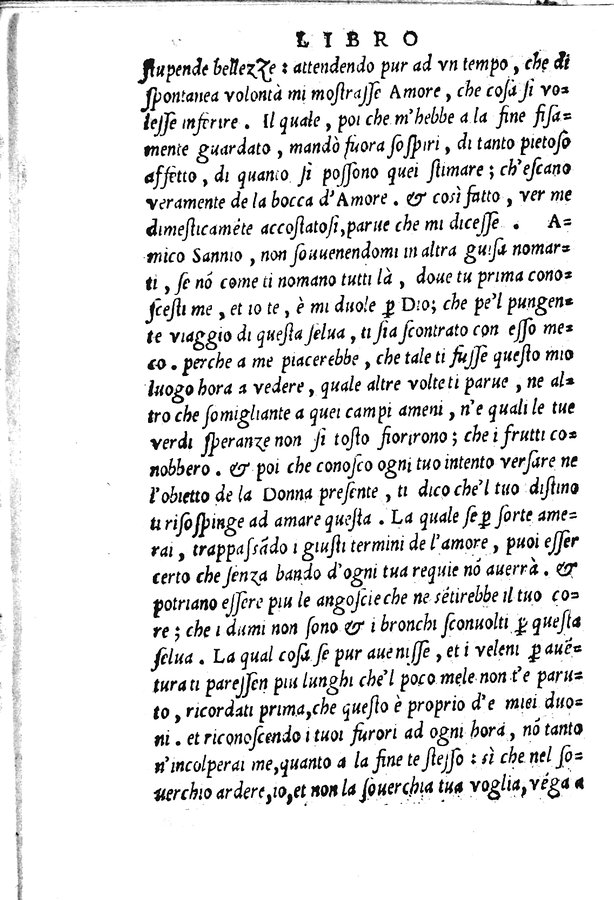 LIBRO
ſtupende bellezze : attendendo pur ad vn tempo, che di
ſpontanea volontà mi moſtraſſe Amore, che coſa ſi vo=
leſſe inferire. Il quale, poi che m'hebbe a la fine fiſa=
mente guardato, mandò fuora ſoſpiri, di tanto pietoſo
affetto, di quanto ſi poſſono quei ſtimare; ch'eſcano
veramente de la bocca d'Amore. & coſì fatto, ver me
dimeſticaméte accoſtatoſi, parue che mi diceſſe. A=
mico Sannio, non ſouuenendomi in altra guiſa nomar=
ti, ſe nó come ti nomano tutti là, doue tu prima cono=
ſceſti me, et io te, è mi duole ꝑ Dio; che pe'l pungen=
te viaggio di queſta ſelua, ti ſia ſcontrato con eſſo me=
co. perche a me piacerebbe, che tale ti fuſſe queſto mio
luogo hora a vedere, quale altre volte ti parue, ne al=
tro che ſomigliante a quei campi ameni, n'e quali le tue
verdi ſperanze non ſi toſto fiorirono; che i frutti co=
nobbero. & poi che conoſco ogni tuo intento verſare ne
l'obietto de la Donna preſente, ti dico che'l tuo diſtino
ti riſoſpinge ad amare queſta. La quale ſe ꝑ ſorte ame=
rai, trappaſſãdo i giuſti termini de l'amore, puoi eſſer
certo che ſenza bando d'ogni tua requie nó auerrà. &
potriano eſſere piu le angoſcie che ne ſétirebbe il tuo co=
re; che i dumi non ſono & i bronchi ſconuolti ꝑ queſta
ſelua. La qual coſa ſe pur aueniſſe, et i veleni ꝑ auẽ=
tura ti pareſſen piu lunghi che'l poco mele non t'e paru=
to, ricordati prima, che queſto è proprio d'e miei duo=
ni. et riconoſcendo i tuoi furori ad ogni hora, nó tanto
n'incolperai me, quanto a la fine te ſteſſo : sì che nel ſo=
uerchio ardere, io, et non la ſouerchia tua voglia, véga a